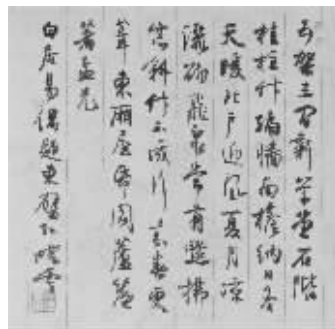 五架三間新草堂石階
桂柱竹編牆南檐納日冬
天暖北戶迎風夏月涼
灑砌飛泉纔有點拂
窗斜竹不成行來春更
葺東廂屋紙閣蘆簾
著孟光
白居易偶題東壁